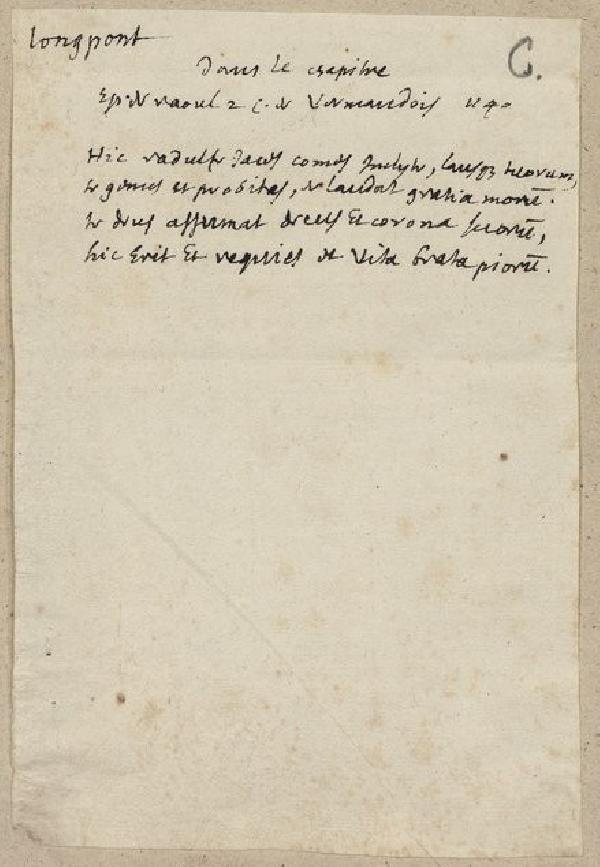 longpont
C.
Dans le chapitre
Ep. de raoul 2 c. de Vermandois
Hic radulfus iacet comes Inclytus, lausqz suorum,
genus et probitas, laudat gratia morū.
affirmat decus Et corona suorū,
hic Erit Et requies et Vita beata piorū.